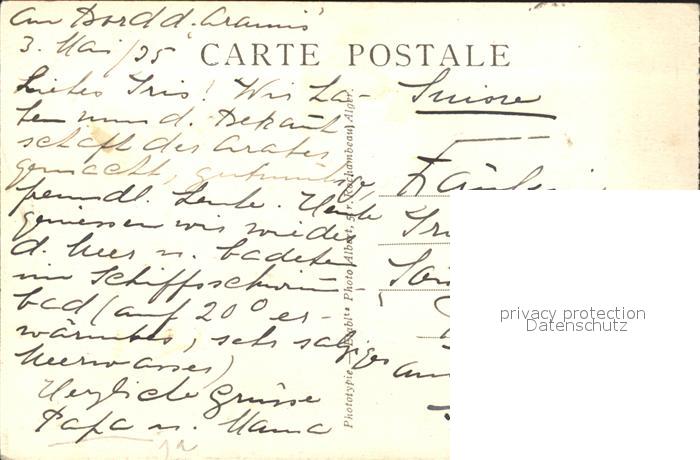 an Bord d. Aramis
3. Mai /25
CARTE POSTALE
Liebes Iris! Wir ha-
ben nun d. Bekannt
schaft der Araber
gemacht, gutmütige,
freundl. Leute. Heute
geniessen wir wieder
d. Meer u. badeten
im Schiffsschwimm
bad (auf 20° er-
wärmtes, sehr salziges
Meerwasser)
Herzliche Grüsse
Papa u. Mama
Phototypie Etablts Photo Albert, 5, r. Rochambeau, Alger.
Suisse
Fräulein
privacy protection
Datenschutz